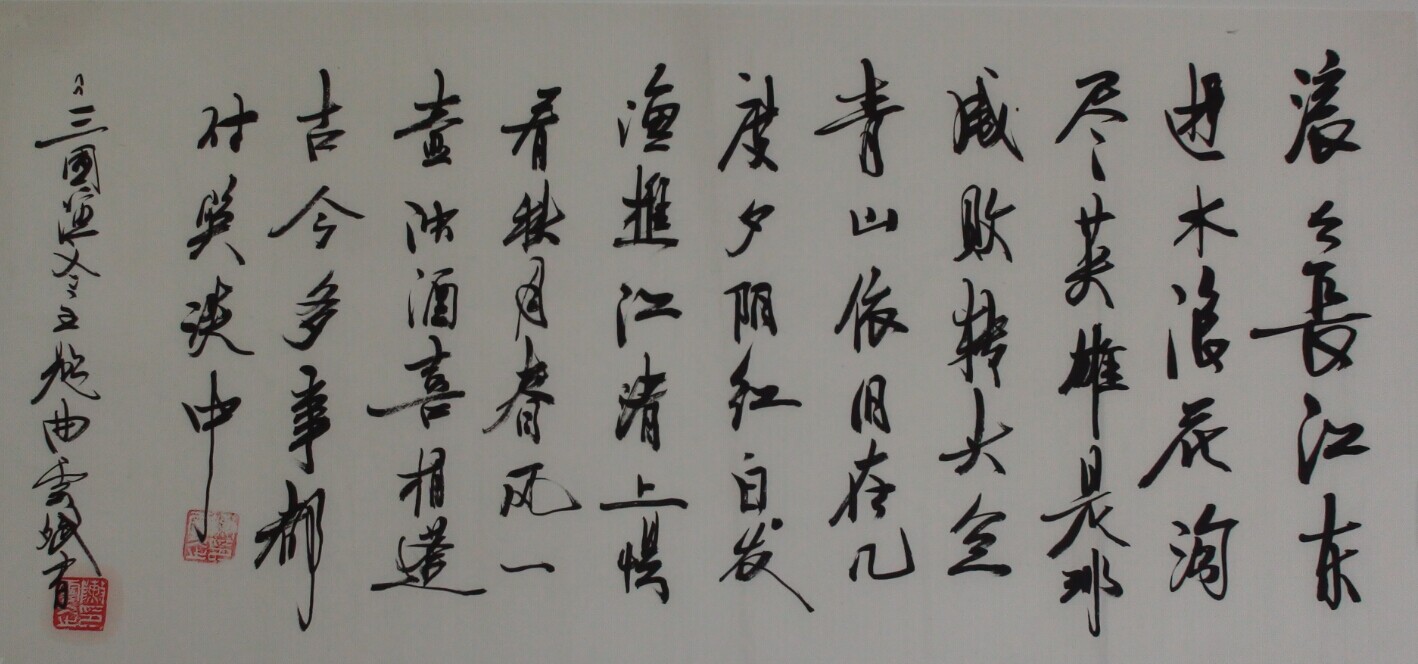 滚滚長江东
逝水浪花淘
尽英雄是非
成败转头空
青山依旧在几
度夕阳红白发
渔樵江渚上惯
看秋月春风一
壶浊酒喜相逢
古今多事都
付笑谈中
三國演义主题曲雲